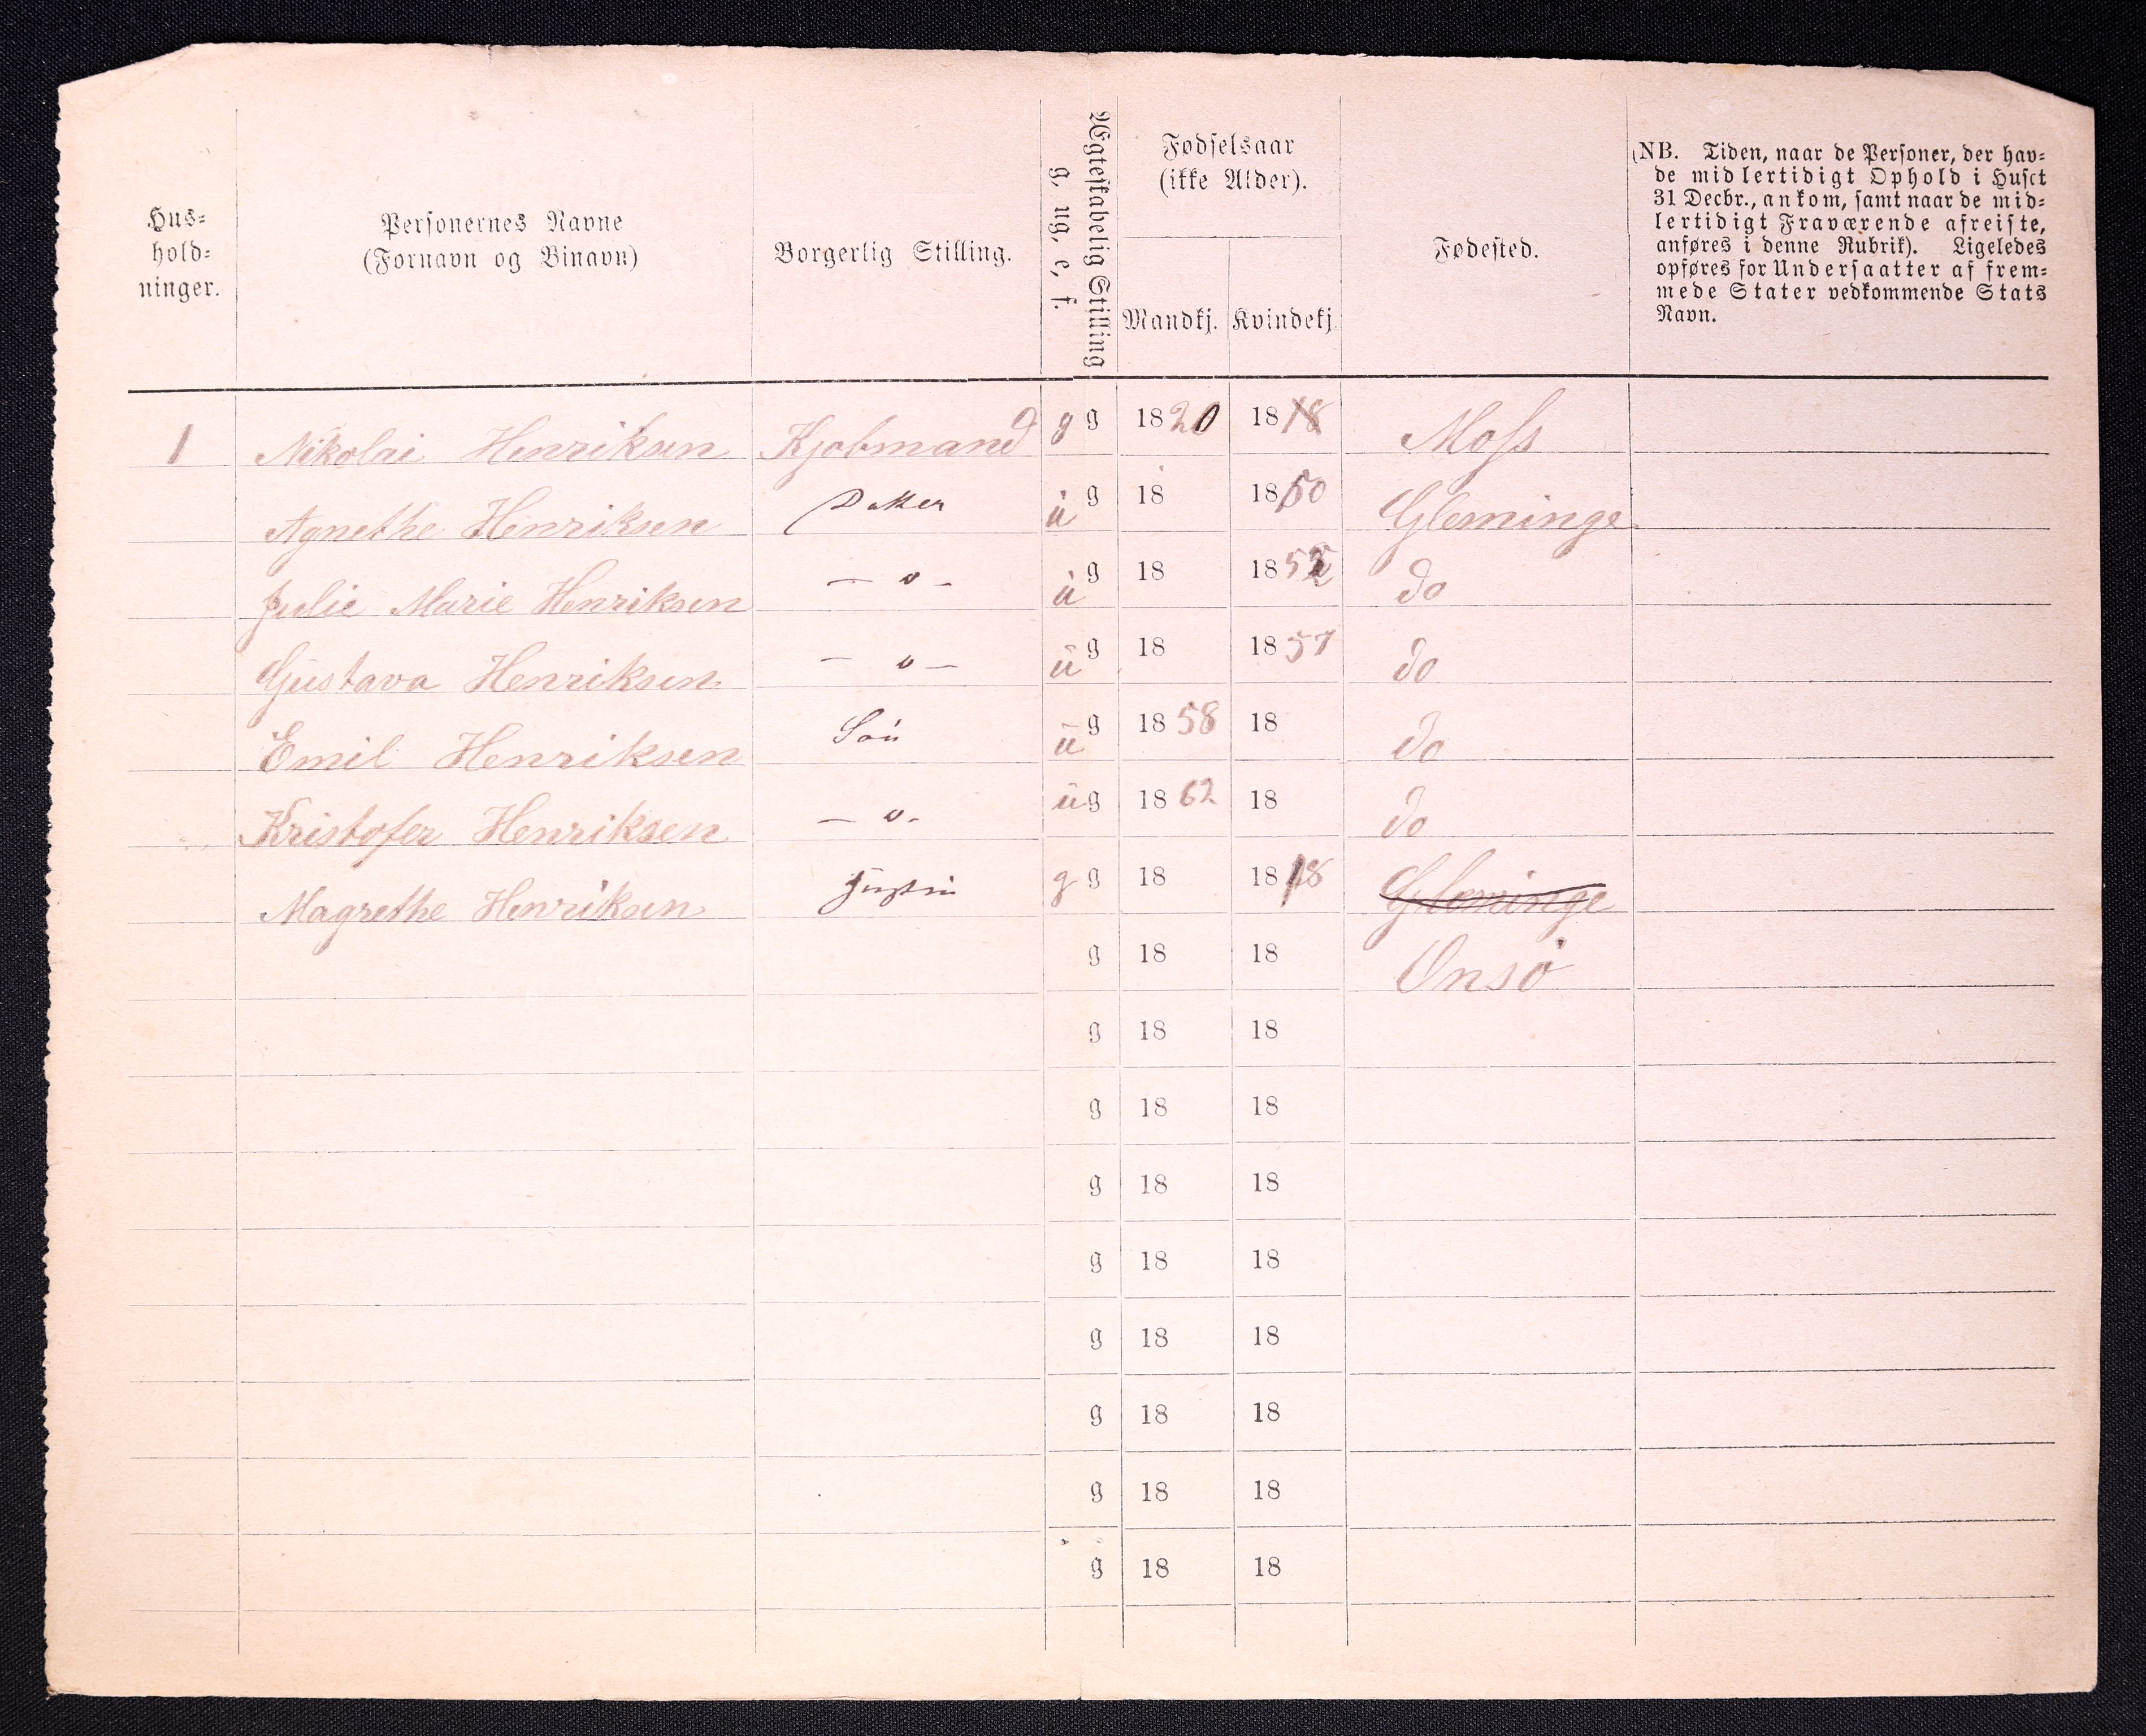 Hus-
hold-
ninger.
Personernes Navne
(Fornavn og Binavn)
Borgerlig Stilling.
Ægteskabelig Stilling
g, ug, e, f.
Fødselsaar
(ikke Alder).
Mandkj. Kvindekj.
Fødested.
(NB. Tiden, naar de Personer, der hav-
de midlertidigt Ophold i Huset
31 Decbr., ankom, samt naar de mid-
lertidigt Fraværende afreiste,
anføres i denne Rubrik). Ligeledes
opføres for Undersaatter af frem-
mede Stater vedkommende Stats
Navn.
1 Nikolai Henriksen Kjøbmand g g 1820 1818 Moss
Agnethe Henriksen Datter u g 18 1850 Gleminge
Julie Marie Henriksen — o — u g 18 185 do
Gustava Henriksen — o — u g 18 1857 do
Emil Henriksen Søn u g 1858 18 do
Kristofer Henriksen — o - u g 1862 18 do
Magrethe Henriksen g g 18 1818 Gleminge
g 18 18 Onsø
g 18 18
g 18 18
g 18 18
g 18 18
g 18 18
g 18 18
g 18 18
g 18 18